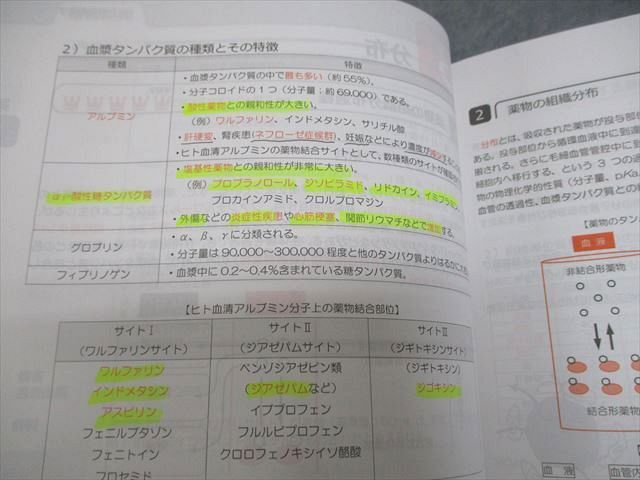 分布
2）血漿タンパク質の種類とその特徴
種類
特徴
アルブミン
・血漿タンパク質の中で最も多い（約55%）。
・分子コロイドの1つ（分子量：約69,000）である。
・酸性薬物との親和性が大きい。
（例）ワルファリン、インドメタシン、サリチル酸
・肝硬変、腎疾患（ネフローゼ症候群）、妊娠などにより濃度が減少する
・ヒト血清アルブミンの薬物結合サイトとして、数種類のサイトが
α₁-酸性糖タンパク質
・塩基性薬物との親和性が非常に大きい。
（例）プロプラノロール、ジソピラミド、リドカイン、イミプラミン、
プロカインアミド、クロルプロマジン
・外傷などの炎症性疾患や心筋梗塞、関節リウマチなどで増加する。
グロブリン
・α、β、γに分類される。
・分子量は90,000～300,000 程度と他のタンパク質よりはるかに大
フィブリノゲン
・血漿中に0.2～0.4%含まれている糖タンパク質。
【ヒト血清アルブミン分子上の薬物結合部位】
サイトⅠ
（ワルファリンサイト）
サイトⅡ
（ジアゼパムサイト）
サイトⅢ
（ジギトキシンサイト）
ワルファリン
ベンゾジアゼピン類
（ジギトキシン）
インドメタシン
（ジアゼパムなど）
ジゴキシン
アスピリン
イブプロフェン
フェニルブタゾン
フルルビプロフェン
フェニトイン
クロロフェノキシイソ酪酸
フロセミド
2
薬物の組織分布
分布とは、吸収された薬物が投与部位
ある。投与部位から循環血液中に到達
搬される。さらに毛細血管管腔中に到
細胞内へ移行する、という 3 つの過
物の物理化学的性質（分子量、pKa、
血管の透過性、血漿タンパク質との
【薬物のタン
血液
非結合形薬物
結合形薬物
血液
血管内